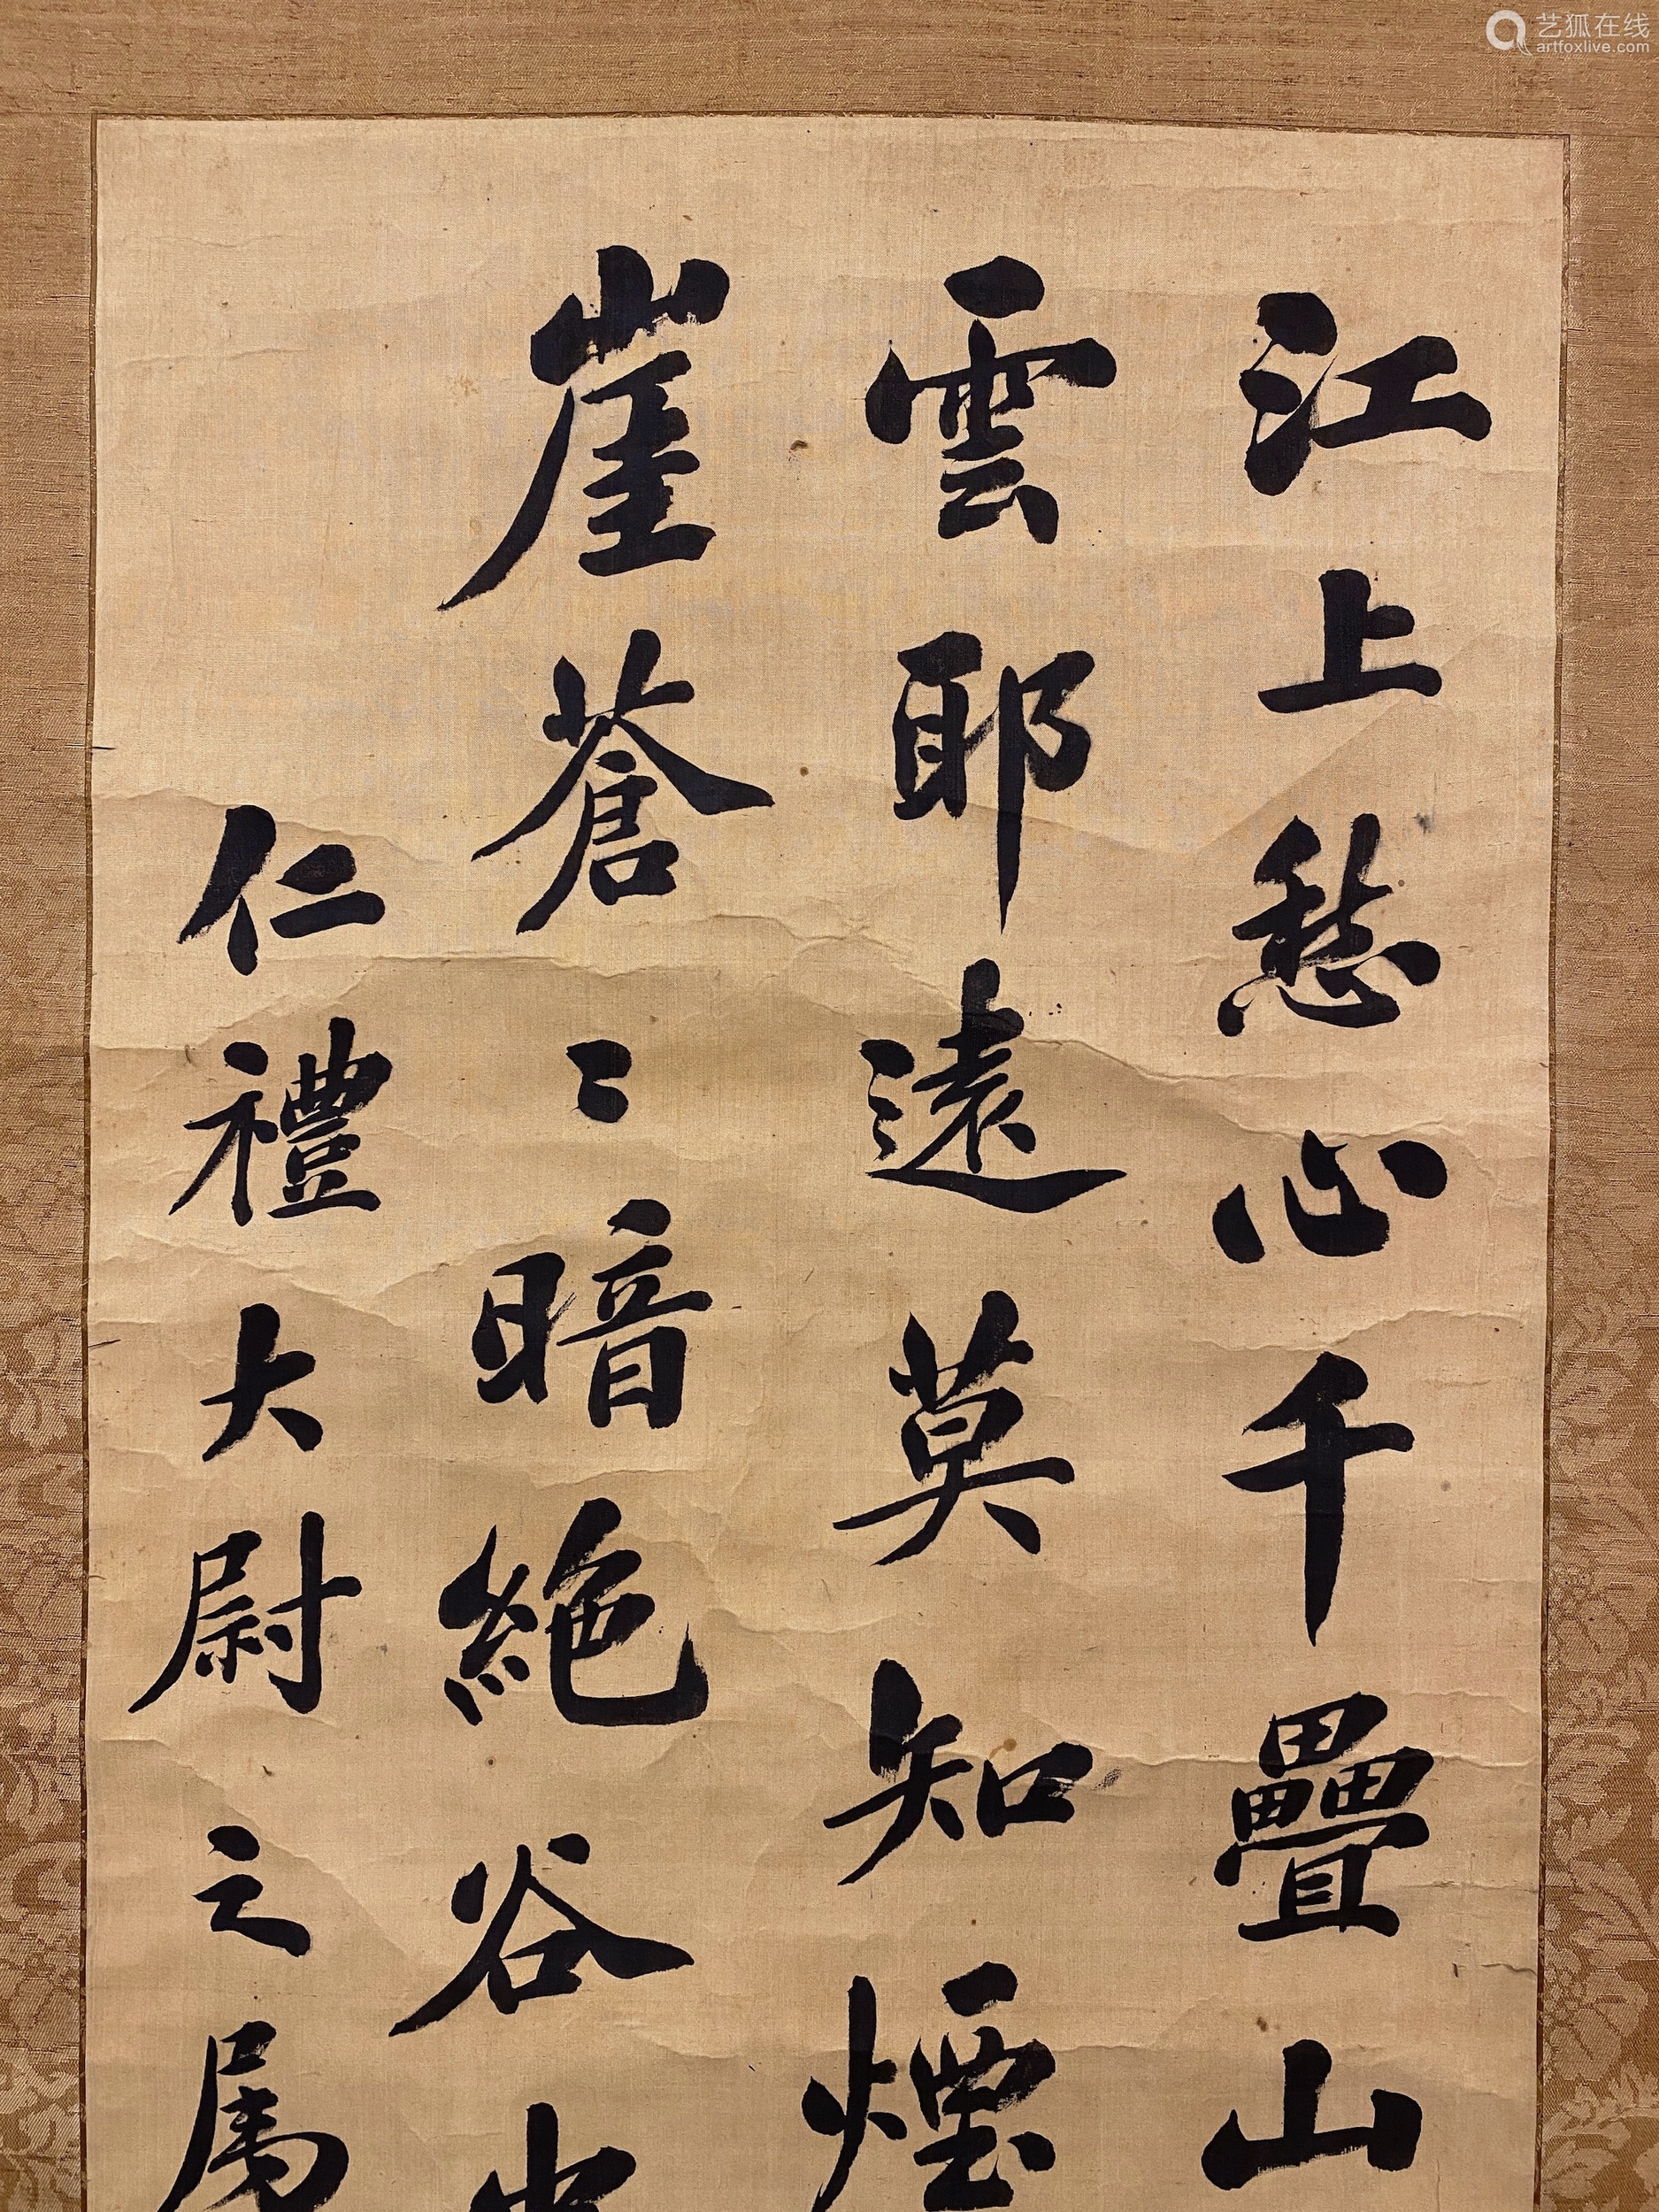 江上愁心千疊山
雲耶遠莫知煙
崖蒼〻暗絶谷中
仁禮大尉之属
艺狐在线
artfoxlive.com